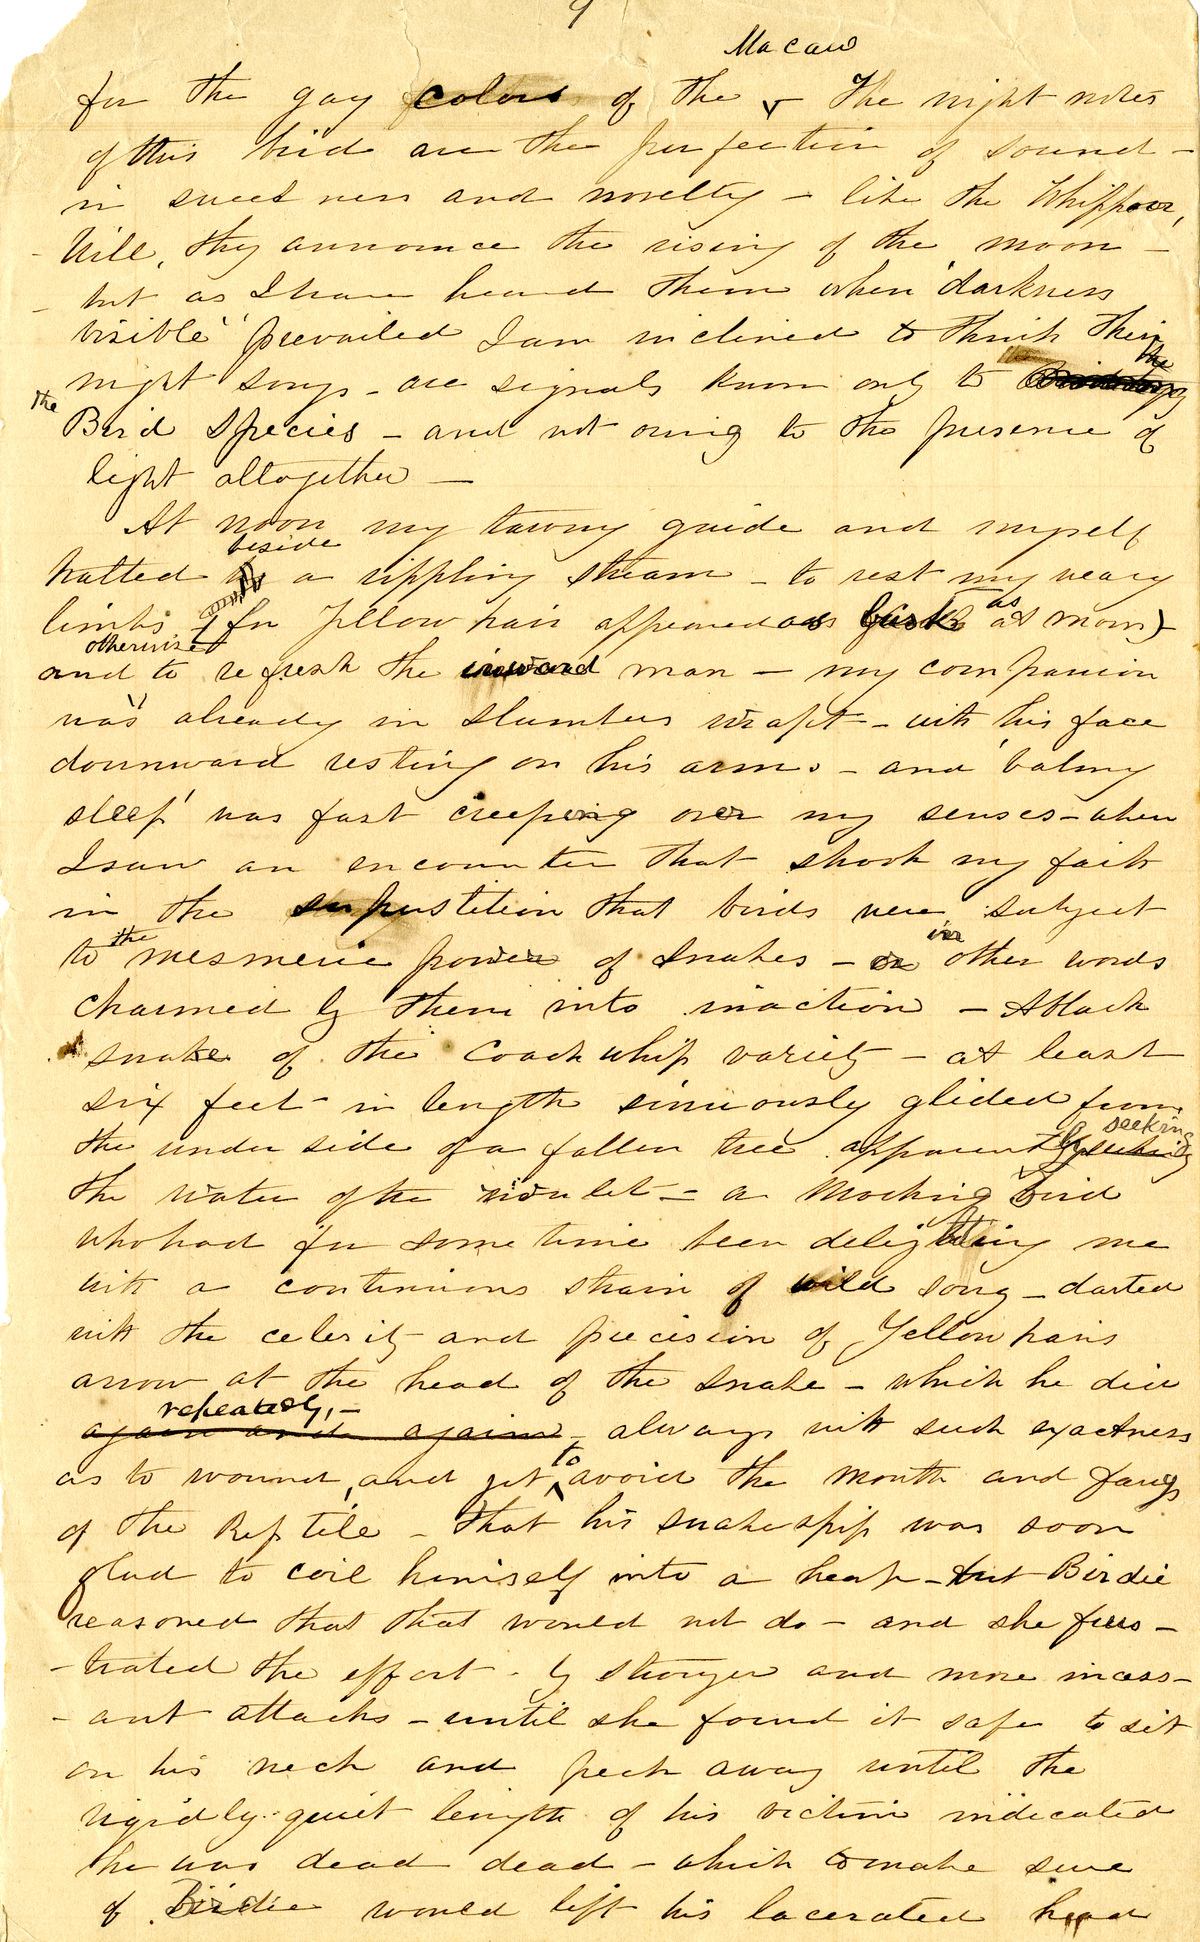 9
Macaw
for the gay colors of the - The night notes
of this bird are the perfection of sound -
in sweetness and novelty - like the Whippoor,
Will, they announce the rising of the moon -
- but as I have heard them when 'darkness
visible' prevailed I am inclined to think their
the
night songs - are signals known only to
the
Bird Species - and not owing to the presence of
light altogether -
At noon my tawny guide and myself
beside
halted a rippling stream - to rest my weary
limbs (for Yellow hair appeared as fresh as at morn)
otherwise
and to refresh the inward man - my companion
was already in slumbers wrapt - with his face
downward resting on his arms - and 'balmy
sleep' was fast creeping over my senses - when
I saw an encounter that shook my faith
in the superstition that birds were subject
the in
to mesmeric power of snakes - or other words
charmed by them into inaction - A black
snake of the Coachwhip variety - at least
six feet in length sinuously glided from
seeking
the under side of a fallen tree apparently seeking
the water of the rivulet - a Mocking bird
who had for some time been delighting me
with a continuous strain of wild song - darted
with the celerity and precision of Yellow hairs
arrow at the head of the snake - which he did
repeatedly, -
again and again - always with such exactness
to
as to wound, and yet avoid the mouth and fangs
of the Reptile - that his snakeship was soon
glad to coil himself into a heap - but Birdie
reasoned that that would not do - and she frus -
- trated the effort - by stronger and more incess -
- ant attacks - until she found it safe to sit
on his neck and peck away until the
rigidly quiet length of his victim indicated
he was dead dead - which to make sure
of Birdie would lift his lacerated head